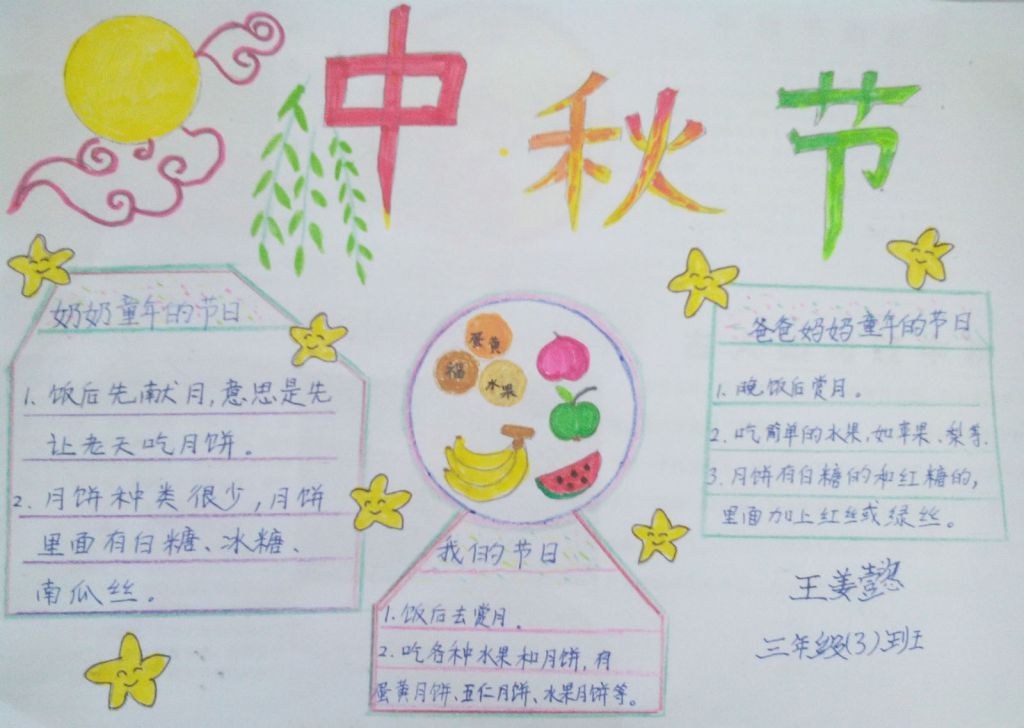 中秋节
奶奶童年的节日
1. 饭后先献月,意思是先
让老天吃月饼。
2. 月饼种类很少,月饼
里面有白糖、冰糖、
南瓜丝。
蛋黄
福
水果
我们的节日
1. 饭后去赏月。
2. 吃各种水果和月饼,有
蛋黄月饼、五仁月饼、水果月饼等。
爸爸妈妈童年的节日
1. 晚饭后赏月。
2. 吃简单的水果,如苹果、梨等.
3. 月饼有白糖的和红糖的,
里面加上红丝或绿丝。
王姜懿
三年级(3)班